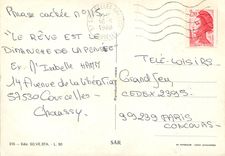 Phrase cachée n°115
"LE RÊVE EST LE
DIMANCHE DE LA PENSÉE"
Ex. Mme Isabelle HAMM
14 Avenue de la libération
57530 Courcelles-
Chaussy
TÉLÉ-LOISIRS
Grand Jeu
CEDEX 2395
99239 PARIS
CONCOURS
SAR